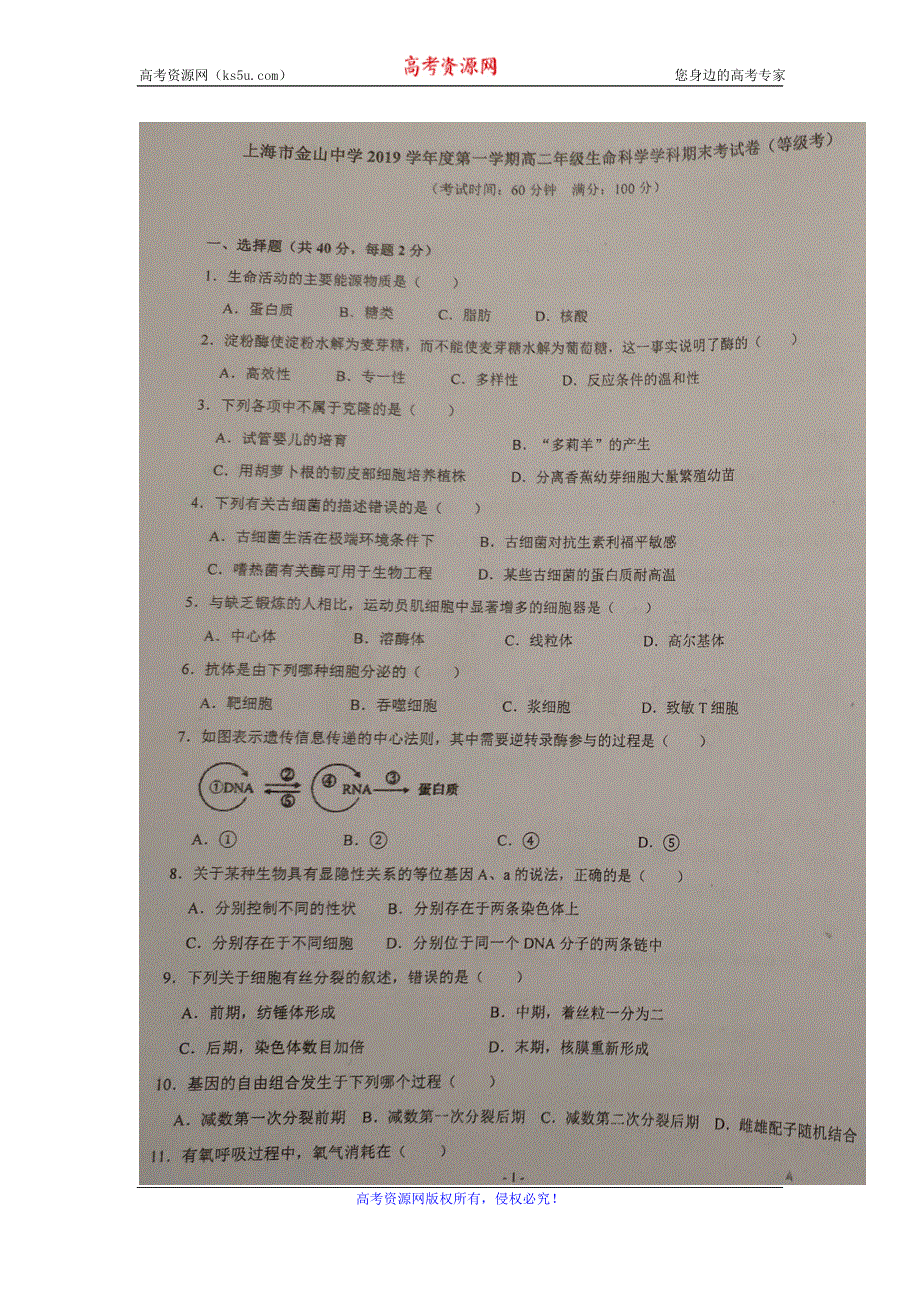 高考资源网（ks5u.com）
高考资源网
您身边的高考专家
上海市金山中学 2019 学年度第一学期高二年级生命科学学科期末考试卷（等级考）
（考试时间：60 分钟 满分：100 分）
一、选择题（共 40 分，每题 2 分）
1．生命活动的主要能源物质是（ ）
A．蛋白质 B．糖类 C．脂肪 D．核酸
2．淀粉酶使淀粉水解为麦芽糖，而不能使麦芽糖水解为葡萄糖，这一事实说明了酶的（ ）
A．高效性 B．专一性 C．多样性 D．反应条件的温和性
3．下列各项中不属于克隆的是（ ）
A．试管婴儿的培育 B．“多莉羊”的产生
C．用胡萝卜根的韧皮部细胞培养植株 D．分离香蕉幼芽细胞大量繁殖幼苗
4．下列有关古细菌的描述错误的是（ ）
A．古细菌生活在极端环境条件下 B．古细菌对抗生素利福平敏感
C．嗜热菌有关酶可用于生物工程 D．某些古细菌的蛋白质耐高温
5．与缺乏锻炼的人相比，运动员肌细胞中显著增多的细胞器是（ ）
A．中心体 B．溶酶体 C．线粒体 D．高尔基体
6．抗体是由下列哪种细胞分泌的（ ）
A．靶细胞 B．吞噬细胞 C．浆细胞 D．致敏 T 细胞
7．如图表示遗传信息传递的中心法则，其中需要逆转录酶参与的过程是（ ）
①DNA ② ⑤ ④ RNA ③ 蛋白质
A．① B．② C．④ D．⑤
8．关于某种生物具有显隐性关系的等位基因 A、a 的说法，正确的是（ ）
A．分别控制不同的性状 B．分别存在于两条染色体上
C．分别存在于不同细胞 D．分别位于同一个 DNA 分子的两条链中
9．下列关于细胞有丝分裂的叙述，错误的是（ ）
A．前期，纺锤体形成 B．中期，着丝粒一分为二
C．后期，染色体数目加倍 D．末期，核膜重新形成
10．基因的自由组合发生于下列哪个过程（ ）
A．减数第一次分裂前期 B．减数第一次分裂后期 C．减数第二次分裂后期 D．雌雄配子随机结合
11．有氧呼吸过程中，氧气消耗在（ ）
- 1 -
A
高考资源网版权所有，侵权必究！